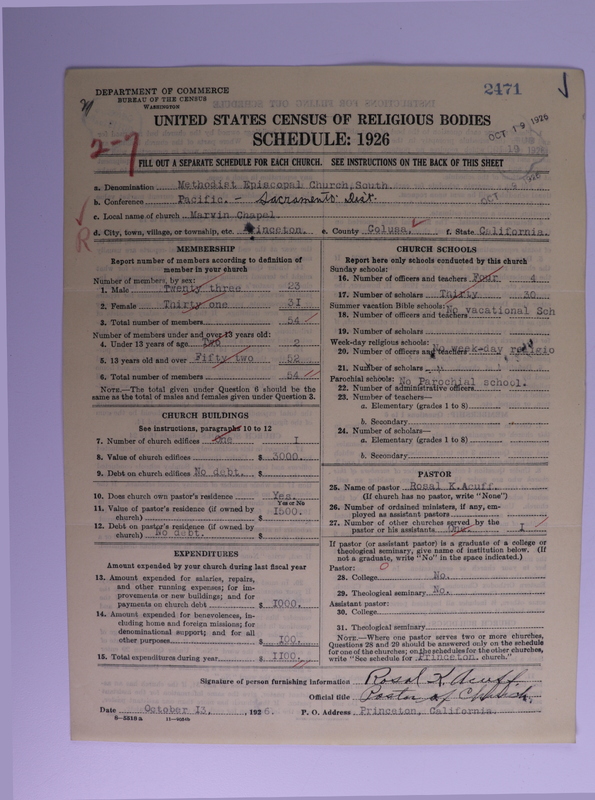 DEPARTMENT OF COMMERCE
BUREAU OF THE CENSUS
WASHINGTON
2471
UNITED STATES CENSUS OF RELIGIOUS BODIES
SCHEDULE: 1926
OCT 19 1926
2-7
FILL OUT A SEPARATE SCHEDULE FOR EACH CHURCH. SEE INSTRUCTIONS ON THE BACK OF THIS SHEET
a. Denomination Methodist Episcopal Church, South.
b. Conference Pacific. - Sacramento Dist.
c. Local name of church Marvin Chapel.
R
d. City, town, village, or township, etc. Princeton. e. County Colusa, f. State California.
MEMBERSHIP
Report number of members according to definition of
member in your church
Number of members, by sex:
1. Male Twenty three 23
2. Female Thirty one 31
3. Total number of members 54
Number of members under and over 13 years old:
4. Under 13 years of age Two 2
5. 13 years old and over Fifty two 52
6. Total number of members 54
NOTE.—The total given under Question 6 should be the
same as the total of males and females given under Question 3.
CHURCH BUILDINGS
See instructions, paragraphs 10 to 12
7. Number of church edifices One I
8. Value of church edifices $ 3000.
9. Debt on church edifices No debt. $
10. Does church own pastor's residence Yes.
Yes or No
11. Value of pastor's residence (if owned by
church) $ I500.
12. Debt on pastor's residence (if owned by
church) No debt. $
EXPENDITURES
Amount expended by your church during last fiscal year
13. Amount expended for salaries, repairs,
and other running expenses; for im-
provements or new buildings; and for
payments on church debt $ I000.
14. Amount expended for benevolences, in-
cluding home and foreign missions; for
denominational support; and for all
other purposes $ I00.
15. Total expenditures during year $ II00.
CHURCH SCHOOLS
Report here only schools conducted by this church
Sunday schools:
16. Number of officers and teachers Four 4
17. Number of scholars Thirty 30
Summer vacation Bible schools:
18. Number of officers and teachers No vacational Sch
19. Number of scholars
Week-day religious schools:
20. Number of officers and teachers No week-day religio
21. Number of scholars "
Parochial schools: No Parochial school.
22. Number of administrative officers
23. Number of teachers—
a. Elementary (grades 1 to 8)
b. Secondary
24. Number of scholars—
a. Elementary (grades 1 to 8)
b. Secondary
PASTOR
25. Name of pastor Rosal K.Acuff.
(If church has no pastor, write "None")
26. Number of ordained ministers, if any, em-
ployed as assistant pastors
27. Number of other churches served by the
pastor or his assistants One I
If pastor (or assistant pastor) is a graduate of a college or
theological seminary, give name of institution below. (If
not a graduate, write "No" in the space indicated.)
Pastor: 0
28. College No.
29. Theological seminary No.
Assistant pastor:
30. College
31. Theological seminary
NOTE.—Where one pastor serves two or more churches,
Questions 28 and 29 should be answered only on the schedule
for one of the churches; on the schedules for the other churches,
write "See schedule for Princeton. church."
Signature of person furnishing information Rosal K. Acuff
Official title Pastor of Church.
Date October I3, 1926. P. O. Address Princeton, California.
6-5518 a 11-9054b